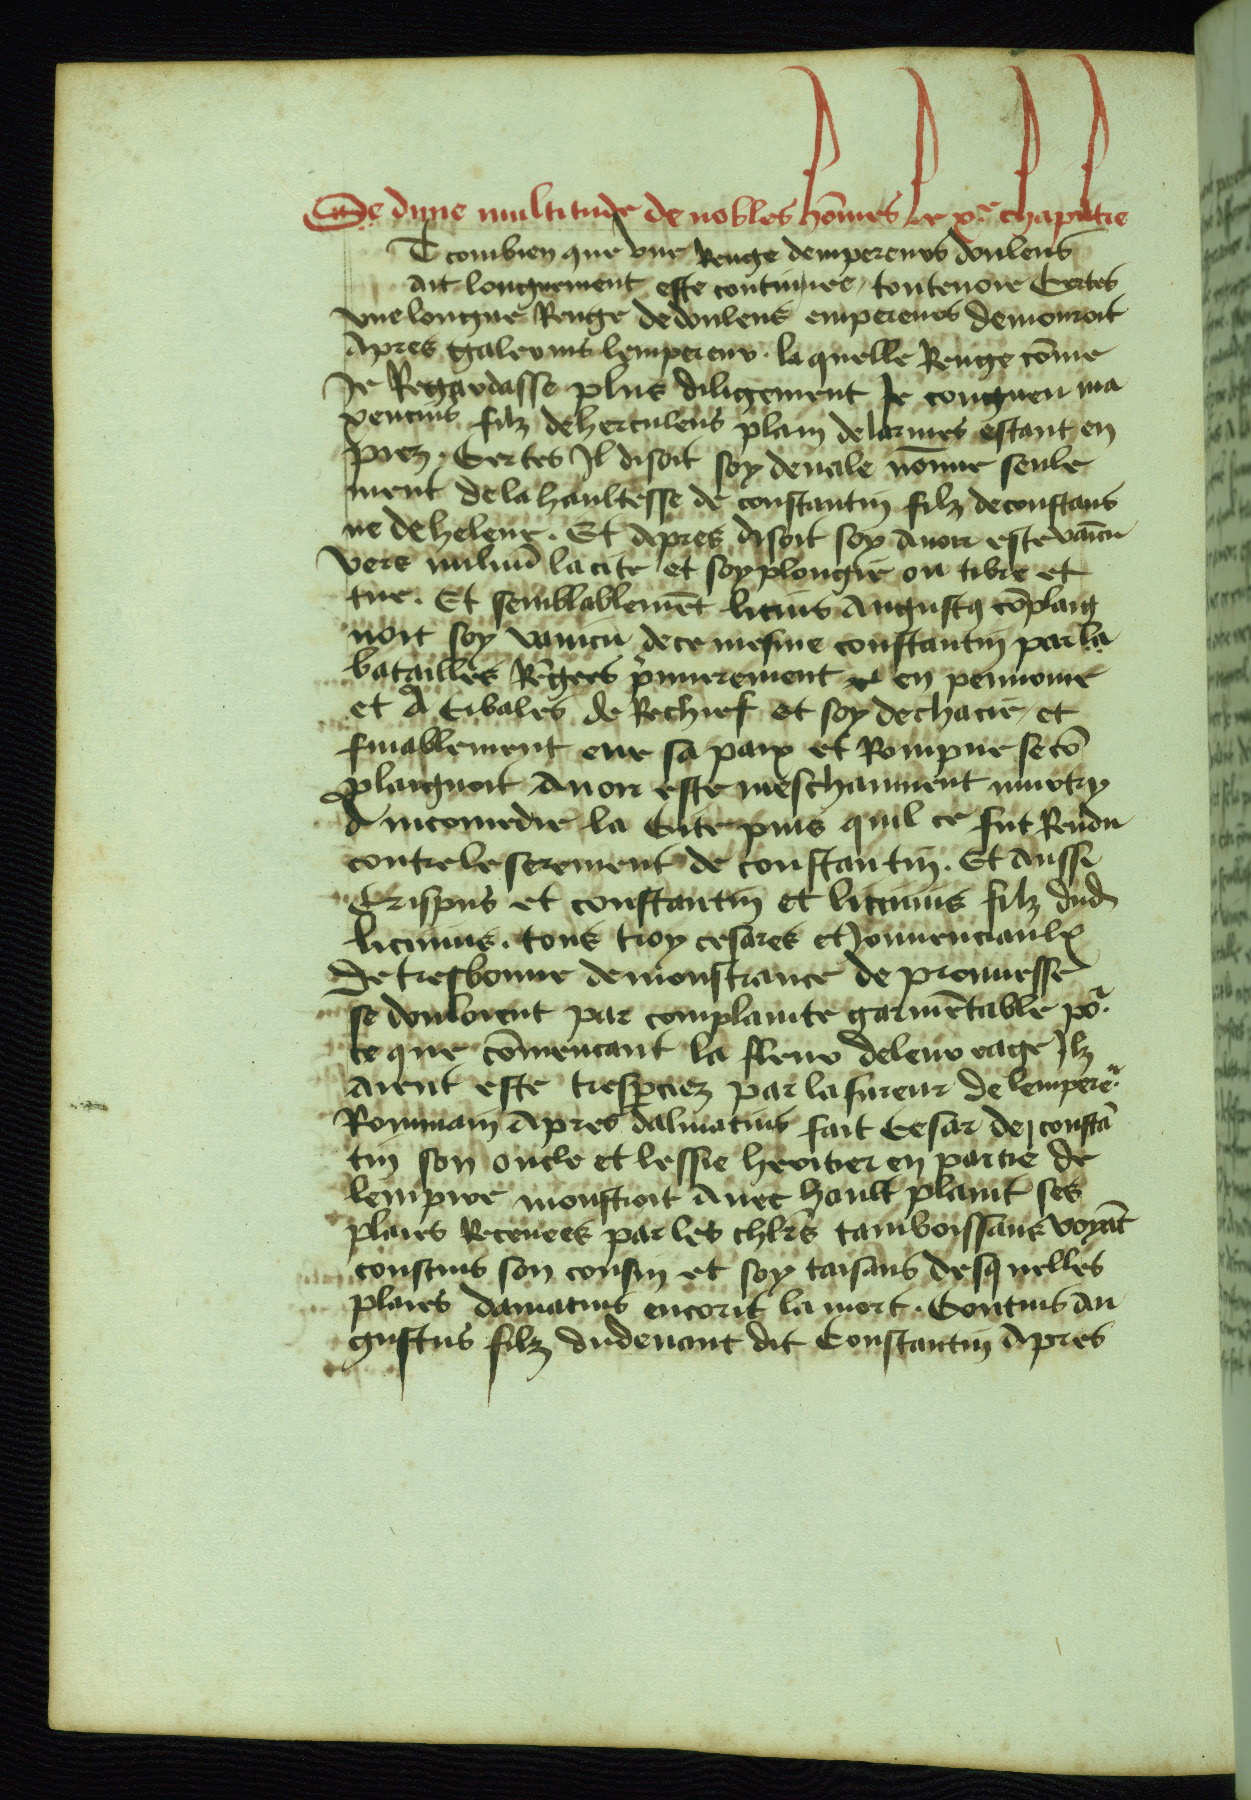 De dune multitude de nobles hões le xe chapitre
T combien que vne Renge dempereurs doulens
Ait longuement este continuee / toutenoie Certes
vne longue Renge dedoulens empereurs demouroit
Apres galerius lempereur . la quelle Renge cõme
Je Regardasse plus diligement Je congneu ma
xencius filz deherculeus plain delarmes estant en
piez . Certes Il disoit soy deuale nõmie seule
ment de la haultesse de constantin filz deconstans
ne de helene . Et Apres disoit soy Auoir este vaĩcu
vers la cite et soy plongie ou tibre et
tue . Et semblablemẽt licius Augustꝯ cõplaig
noit soy vaincu dece mesme constantin par la
batailles Rẽgees p̃mierement en pennonie
et A tibales de Rechief et soy dechacie / et
finablement eue sa paix et Rompue se cõ
plaignoit Auoir este meschamment murtry
A nicomedie la Cite puis quil ce fut Rendu
contre le serement de constantin . Et Aussi
Crispus et constantin et licinius filz dud
licinius . tous troy cesares et Jouuenciaulx
De tresbonne demonstrance de prouuesse
se douloient par complainte garmẽtable por
ce que cõmencant la fleur deleur eage Ilz
Aient este tresperciez par la fureur de lempere
Rommain Apres dalmatius fait Cesar de constã
tin son oncle et lessie heritier en partie de
lempire monstroit Auec hault plaint ses
plaies Receuees par les chlrs tamboissans voyãt
constius son cousin et soy taisans desquelles
plaies damatius encorit la mort . Contius au
gustus filz dudeuant dit Constantin Apres